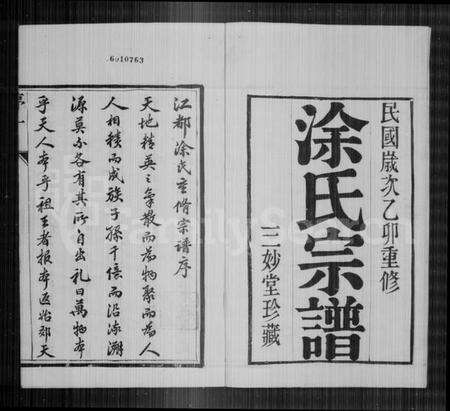 6010763
民國歲次乙卯重修
涂氏宗譜
三妙堂珍藏
江都涂氏重修宗譜序
天地精英之氣散而為物聚而為人
人相積而成族子孫千億而沿流溯
源莫不各有其所自出禮曰萬物本
乎天人本乎祖王者報本返始郊天